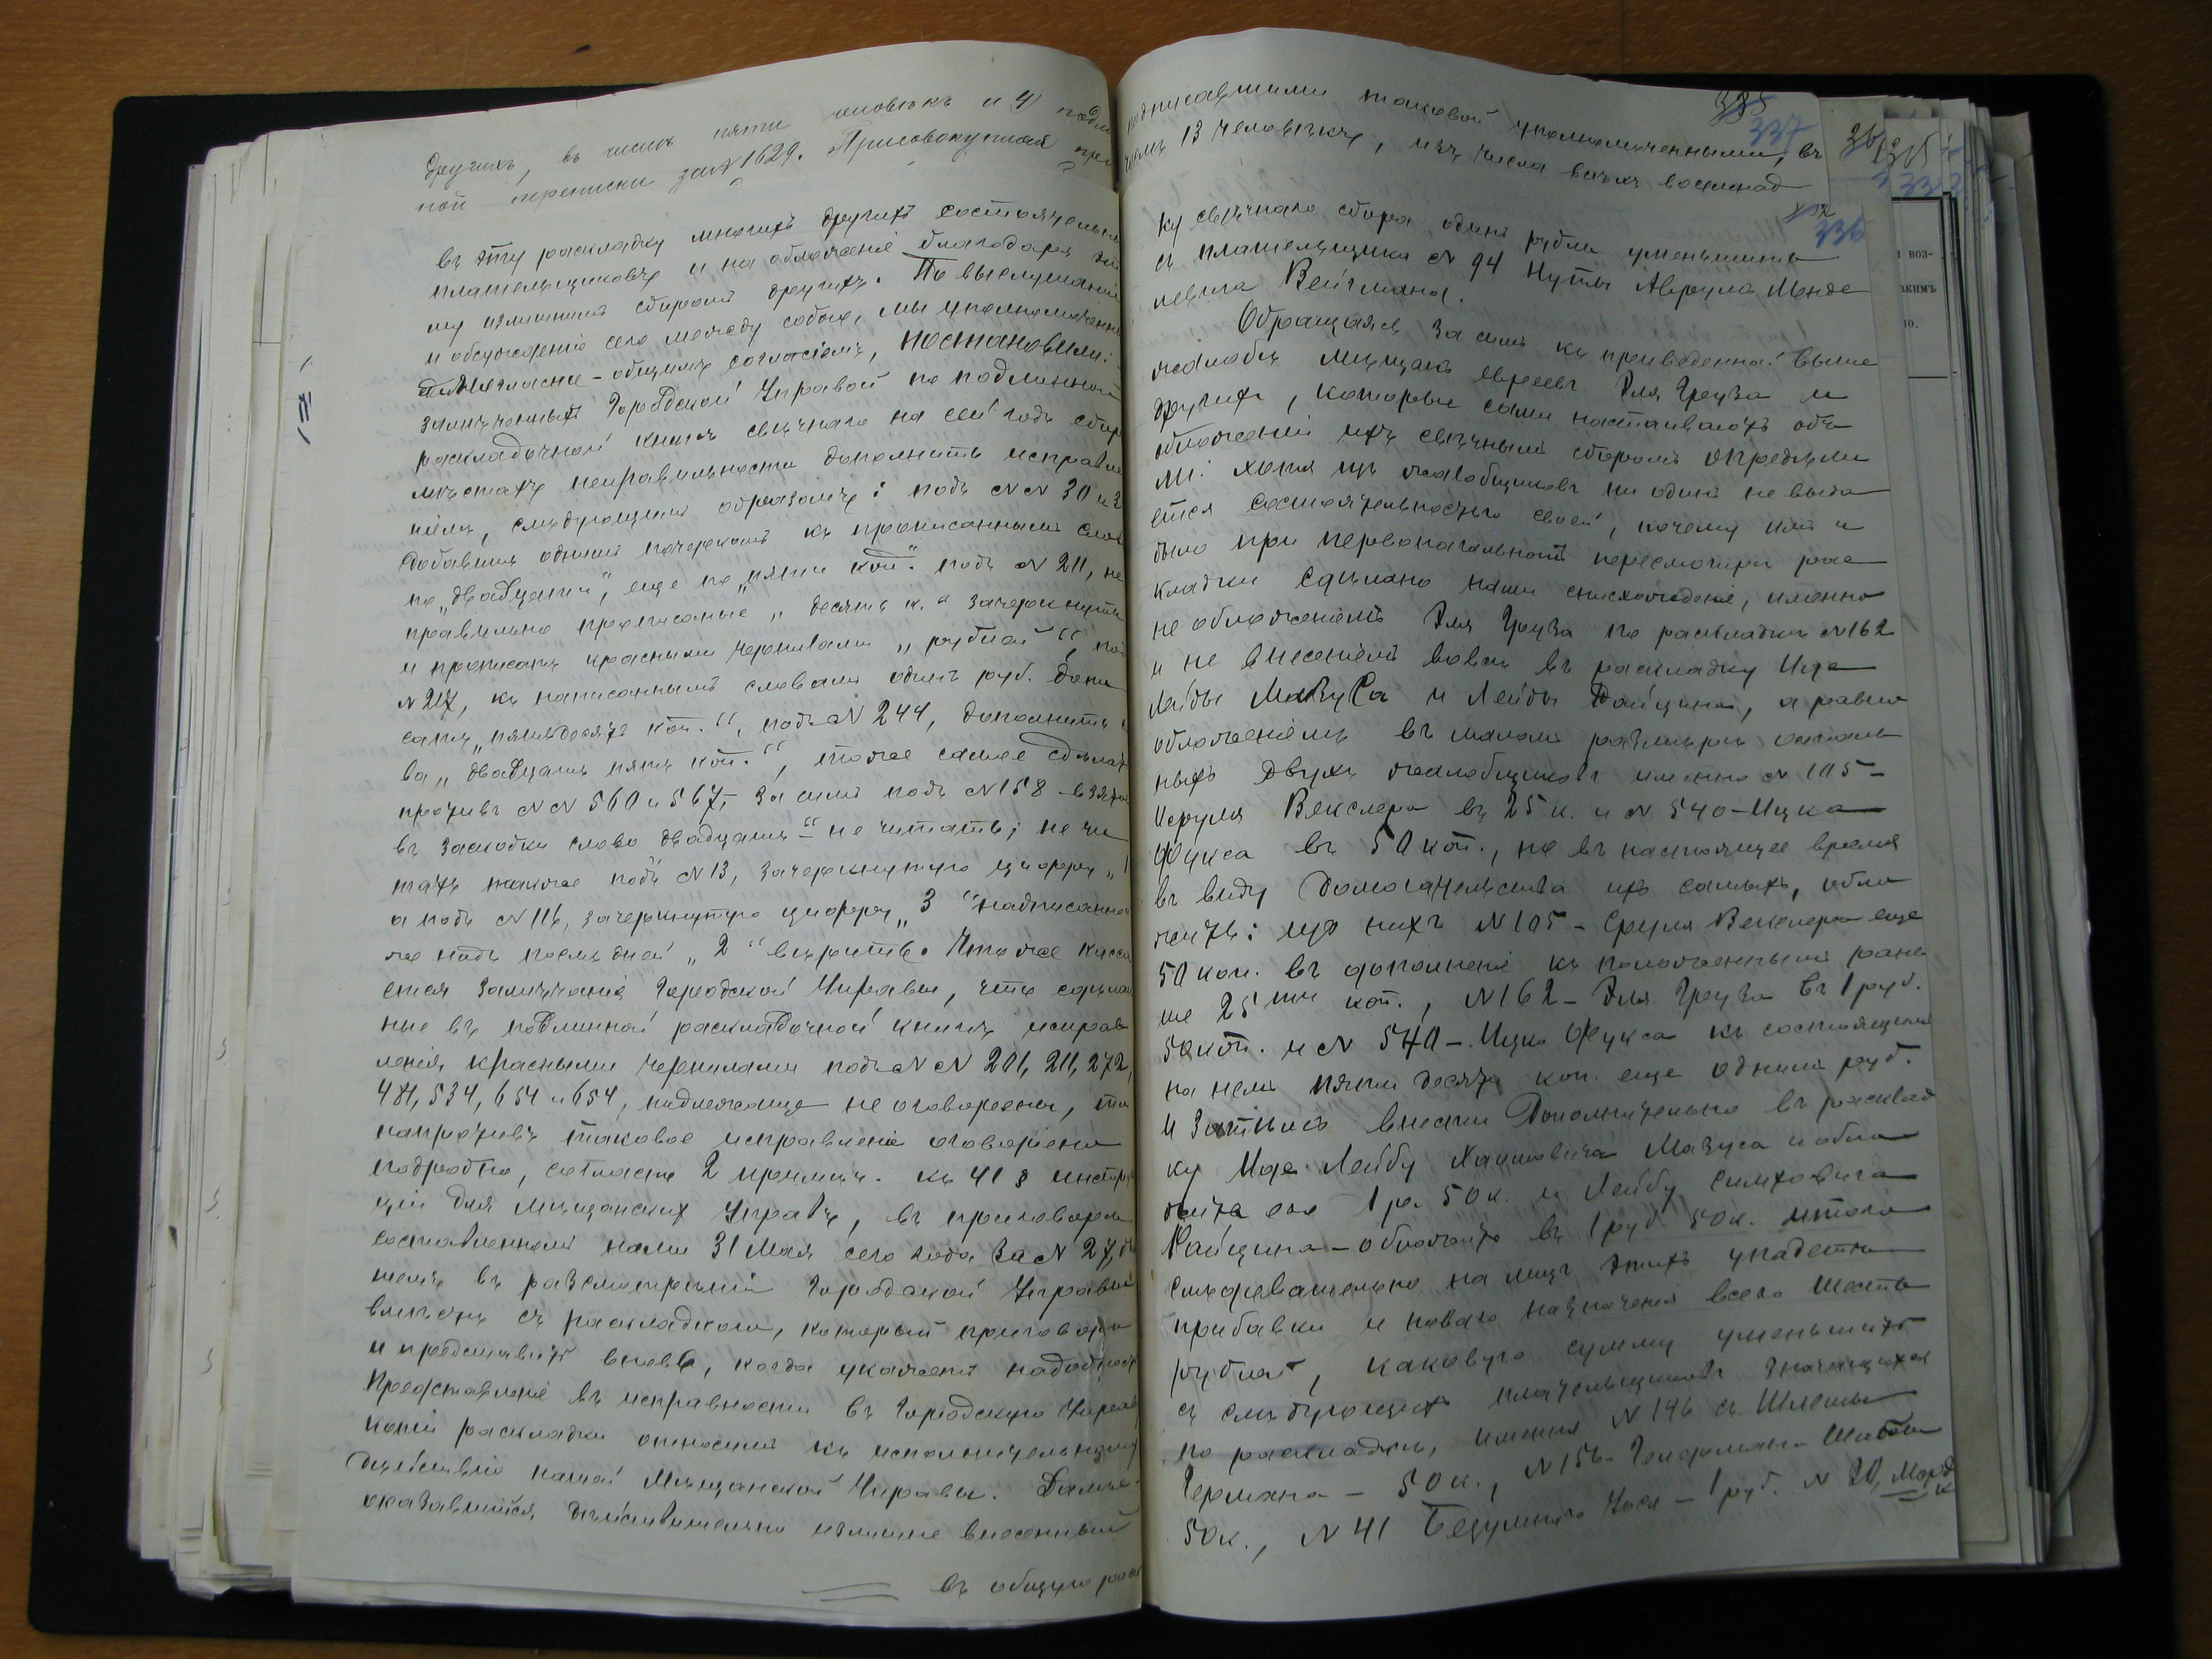 другихъ, въ числѣ пяти человѣкъ и 4 подли
ной переписки за № 1629. Присовокупляя при
въ эту раскладку многихъ другихъ состоятельн
плательщиковъ и на обложеніе благодаря
му излишнимъ сборомъ другихъ. По выслушаніи
и обсужденіи сего между собою, мы уполномоченн
единогласно-общимъ согласіемъ, постановили:
замѣченныя Городской Управой по подлинной
раскладочной книгѣ свѣчнаго на сей годъ сбор
мѣстахъ неправильности дополнить исправле
ніемъ, слѣдующимъ образомъ: подъ №№ 30 и 3
добавить однимъ почеркомъ къ прописаннымъ слов
по „двадцати", еще по „пяти коп." подъ № 211, не
правильно прописаные „десять к." зачеркнуть
и прописать красными чернилами „рублей", под
№ 217, къ написаннымъ словамъ одинъ руб. допи
сать „пятьдесятъ коп.", подъ № 244, дополнить с
ва „двадцать пять коп.", тоже самое сдѣлать
противъ №№ 560 и 567,- За симъ подъ № 158 - взятое
въ заскобки слово двадцать" - не читать; не чи
тать также подъ № 13, зачеркнутую цифру „1
а подъ № 116, зачеркнутую цифру „3" надписанно
же надъ послѣдней „2" вѣрить. Что же касса
ется замѣчанія Городской Управы, что сдѣлан
ные въ подлинной раскладочной книгѣ исправ
ленія красными чернилами подъ №№ 201, 211, 272,
481, 534, 654 и 654, надлежаще не оговорены, то
напротивъ таковое исправленіе оговорено
подробно, согласно 2 примѣч. къ 41 § инстру
ціи для Мѣщанскихъ Управъ, въ приговорѣ
составленномъ нами 31 Мая сего года за № 27,
шемъ въ разсмотрѣніи Городской Управы
вмѣстѣ съ раскладкою, который приговоръ
и представить вновь, когда укажетъ надобность
Представленіе въ исправности въ Городскую Управу
копіи раскладки относимъ къ исполнительному
дѣйствію нашей Мѣщанской Управы. Далѣе
оказавшійся дѣйствительно излишне внесенный
въ общую раск
335
337
подписавшими таковой уполномоченными, въ
чемъ 13 человѣкъ, изъ числа всѣхъ восемнад
336
ку свѣчнаго сбора одинъ рубль уменьшить
съ плательщика № 94 Нуты Аврума Менде
левича Вейсмана.
Обращаясь за симъ къ приведенной выше
жалобѣ мѣщанъ евреевъ Эля Греуза и
другихъ, которые сами настаиваютъ объ
обложеніи ихъ свѣчнымъ сборомъ опредѣли
ли: хотя изъ жалобщиковъ ни одинъ не выда
ется состоятельностью своей, почему имъ и
было при первоначальномъ пересмотрѣ рас
кладки сдѣлано нами снисхожденіе, именно
не обложеніемъ Эля Греуза по раскладкѣ № 162
и не внесеніемъ вовсе въ раскладку Ице
Лейбы Мазуса и Лейбы Райцина, а равно
обложеніемъ въ маломъ размѣрѣ осталь
ныхъ двухъ жалобщиковъ именно № 105 -
Исруля Векслера въ 25 к. и № 540 - Ицка
Фукса въ 50 коп., но въ настоящее время
въ виду домогательства ихъ самыхъ, обло
жить: изъ нихъ № 105 - Сруля Векслера еще
50 коп. въ дополненіе къ положеннымъ рань
ше 25ти коп., № 162 - Эля Греуза въ 1 руб.
50 коп. и № 540 - Ицко Фукса къ состоящимъ
на немъ пятидесяти коп. еще однимъ руб.
и затѣмъ внести дополнительно въ расклад
ку Ице Лейбу Хаимовича Мазуса и обло
жить его 1 р. 50 к. и Лейбу Симховича
Райцина - обложить въ 1 руб. 50 к. итого
слѣдовательно на лицъ этихъ упадетъ
прибавки и новаго назначенія всего шесть
рублей, каковую сумму уменьшить
съ слѣдующихъ плательщиковъ значащихся
по раскладкѣ, именно № 146 съ Шлемы
Германа - 50 к., № 156 - Гонермана
50 к., № 41 Безумнаго Усея - 1 руб. № 20, Морд